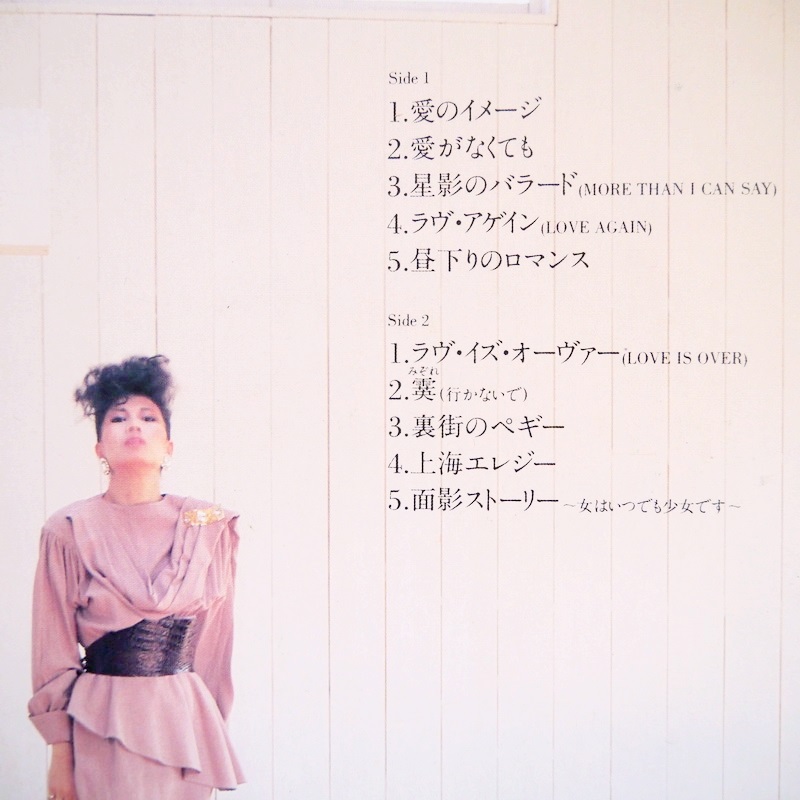 Side 1
1.愛のイメージ
2.愛がなくても
3.星影のバラード(MORE THAN I CAN SAY)
4.ラヴ・アゲイン(LOVE AGAIN)
5.昼下りのロマンス
Side 2
1.ラヴ・イズ・オーヴァー(LOVE IS OVER)
みぞれ
2.霙(行かないで)
3.裏街のペギー
4.上海エレジー
5.面影ストーリー～女はいつでも少女です～